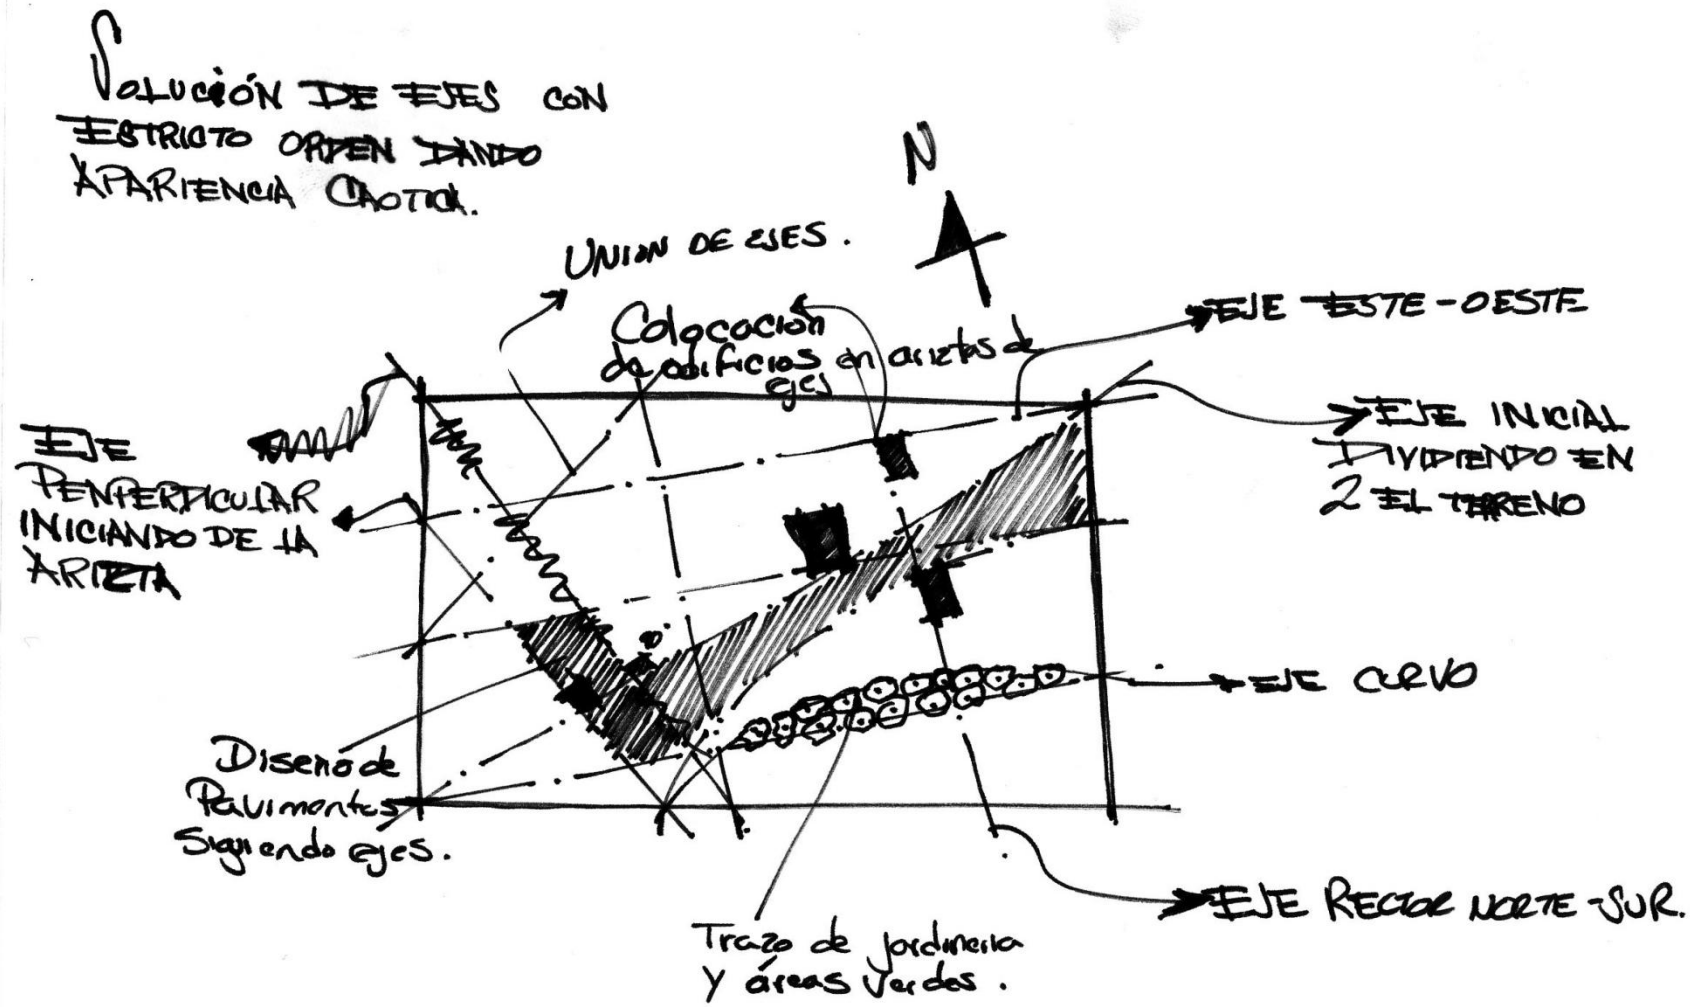 SOLUCIÓN DE EJES CON
ESTRICTO ORDEN DANDO
APARIENCIA CAOTICA.
N
UNION DE EJES.
Colocación
de edificios en arietas de
ejes
EJE ESTE-OESTE
EJE INICIAL
DIVIDIENDO EN
2 EL TERRENO
EJE
PENPERDICULAR
INICIANDO DE LA
ARIETA
EJE CURVO
Diseño de
Pavimentos
Siguiendo ejes.
EJE RECTOR NORTE-SUR.
Trazo de jardineria
y áreas verdes.